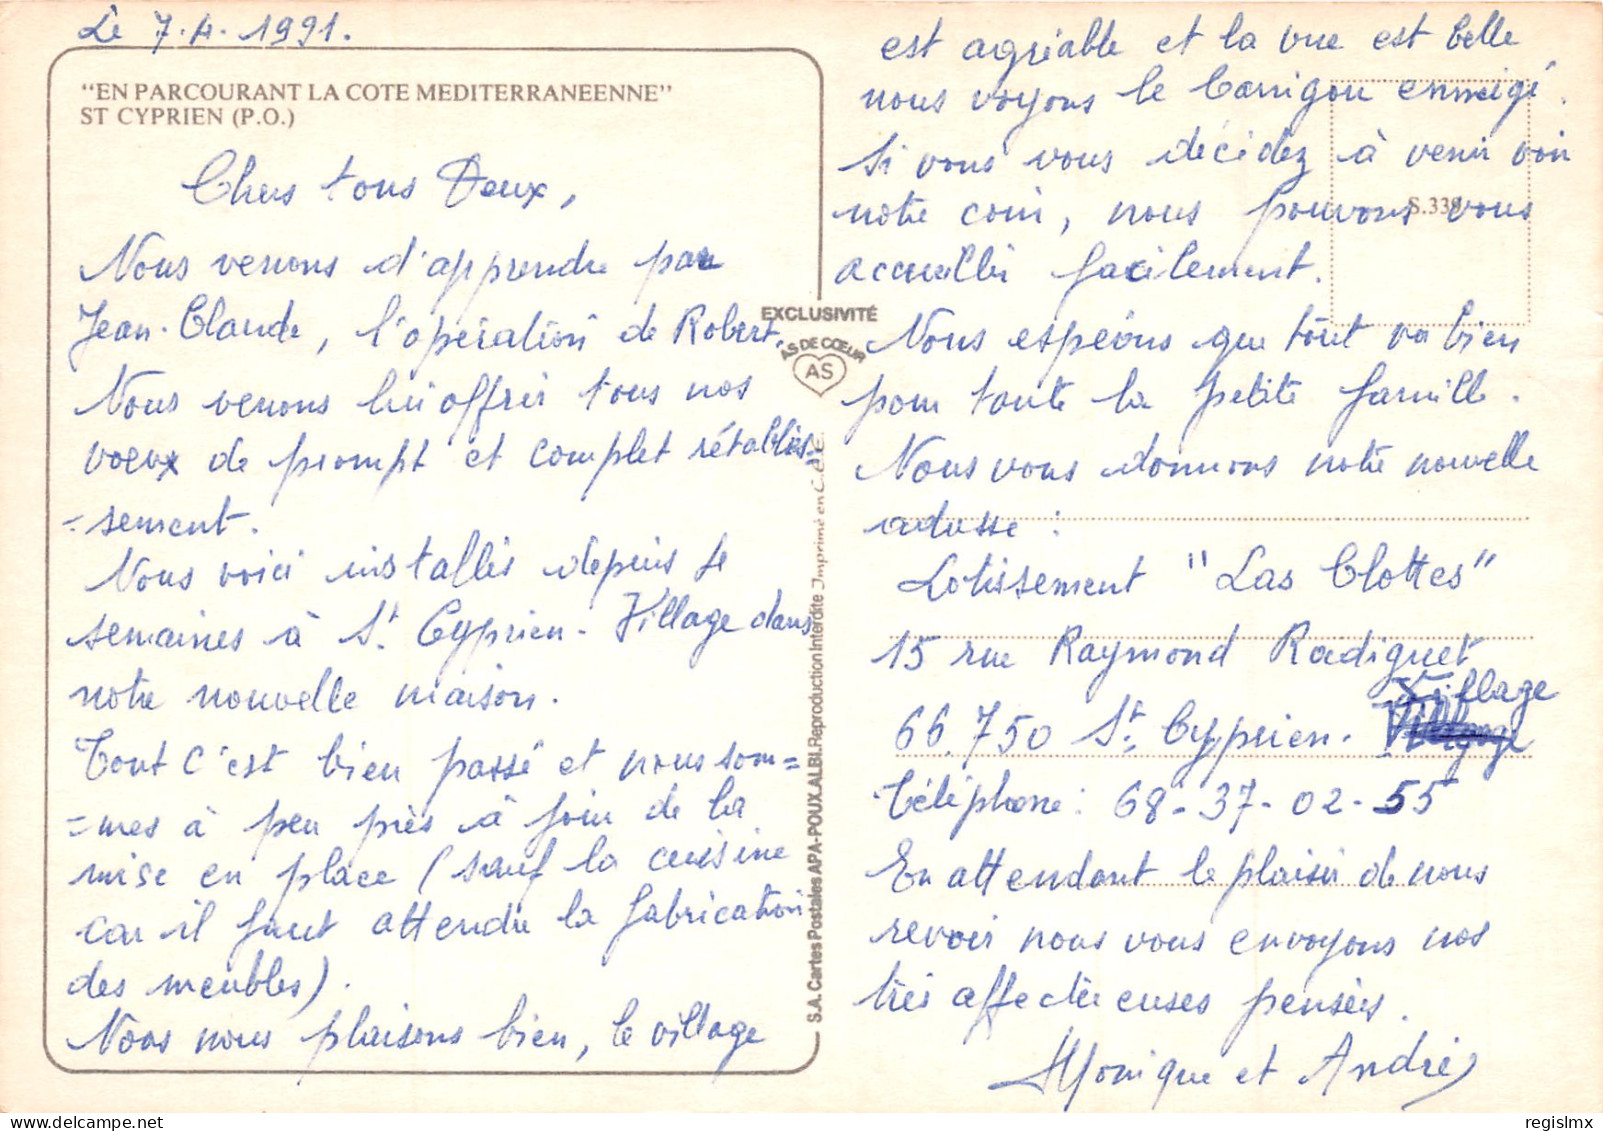 Le 7.4.1991.
"EN PARCOURANT LA COTE MEDITERRANEENNE"
ST CYPRIEN (P.O.)
Chers tous Deux,
Nous venons d'apprendre par
Jean-Claude, l'opération de Robert.
Nous venons lui offrir tous nos
voeux de prompt et complet rétablis=
=sement.
Nous voici installés depuis 4
semaines à St. Cyprien-Village dans
notre nouvelle maison.
Tout c'est bien passé et nous som=
=mes à peu près à jour de la
mise en place (sauf la cuisine
car il faut attendre la fabrication
des meubles).
Nous nous plaisons bien, le village
EXCLUSIVITÉ
AS DE CŒUR
AS
S.A. Cartes Postales APA-POUX.ALBI.Reproduction Interdite Imprimé en C.E.E.
est agréable et la vue est belle
nous voyons le Canigou enneigé.
Si vous vous décidez à venir voir
S.339
notre coin, nous pouvons vous
accueillir facilement.
Nous espérons que tout va bien
pour toute la petite famille.
Nous vous donnons notre nouvelle
adresse :
Lotissement "Las Clottes"
15 rue Raymond Radiguet
66.750 St. Cyprien. Village
Téléphone : 68-37-02-55
En attendant le plaisir de nous
revoir nous vous envoyons nos
très affectueuses pensées.
Monique et André
regislmx